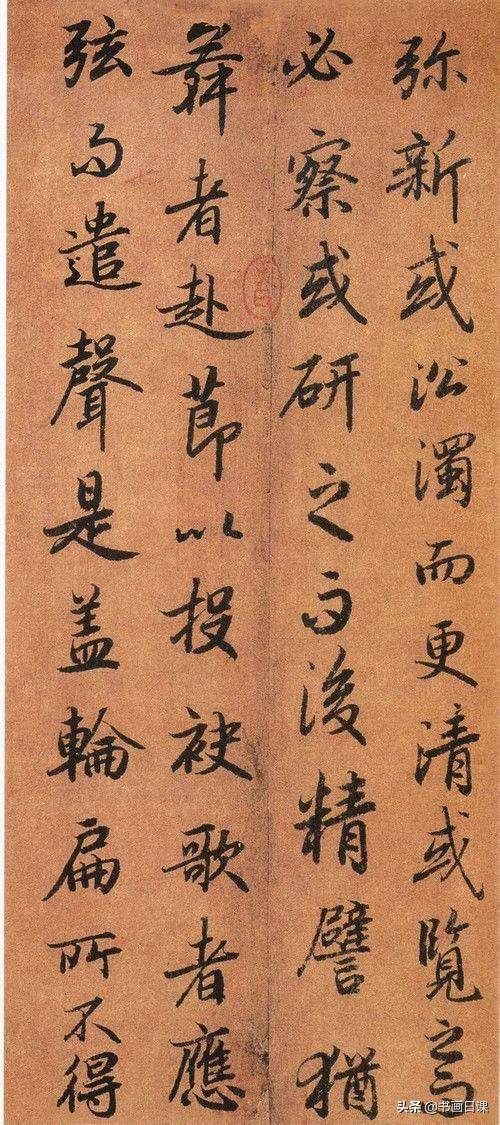 弥新或㳂濁而更清或覽之而
必察或研之而後精譬猶
舞者赴莭以投袂歌者應
弦而遣聲是盖輪扁所不得
头条 @书画日课